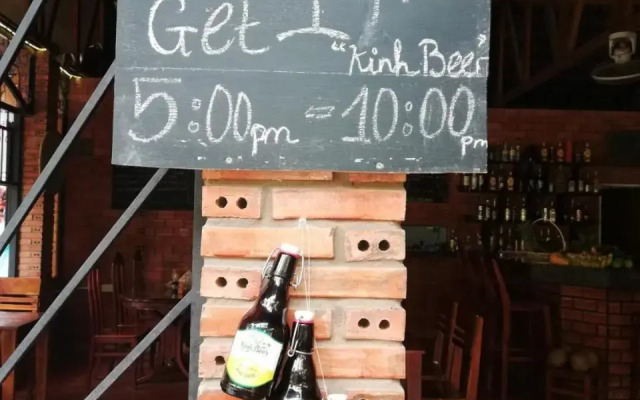 Get 1
"Kinh Beer"
5:00pm - 10:00pm